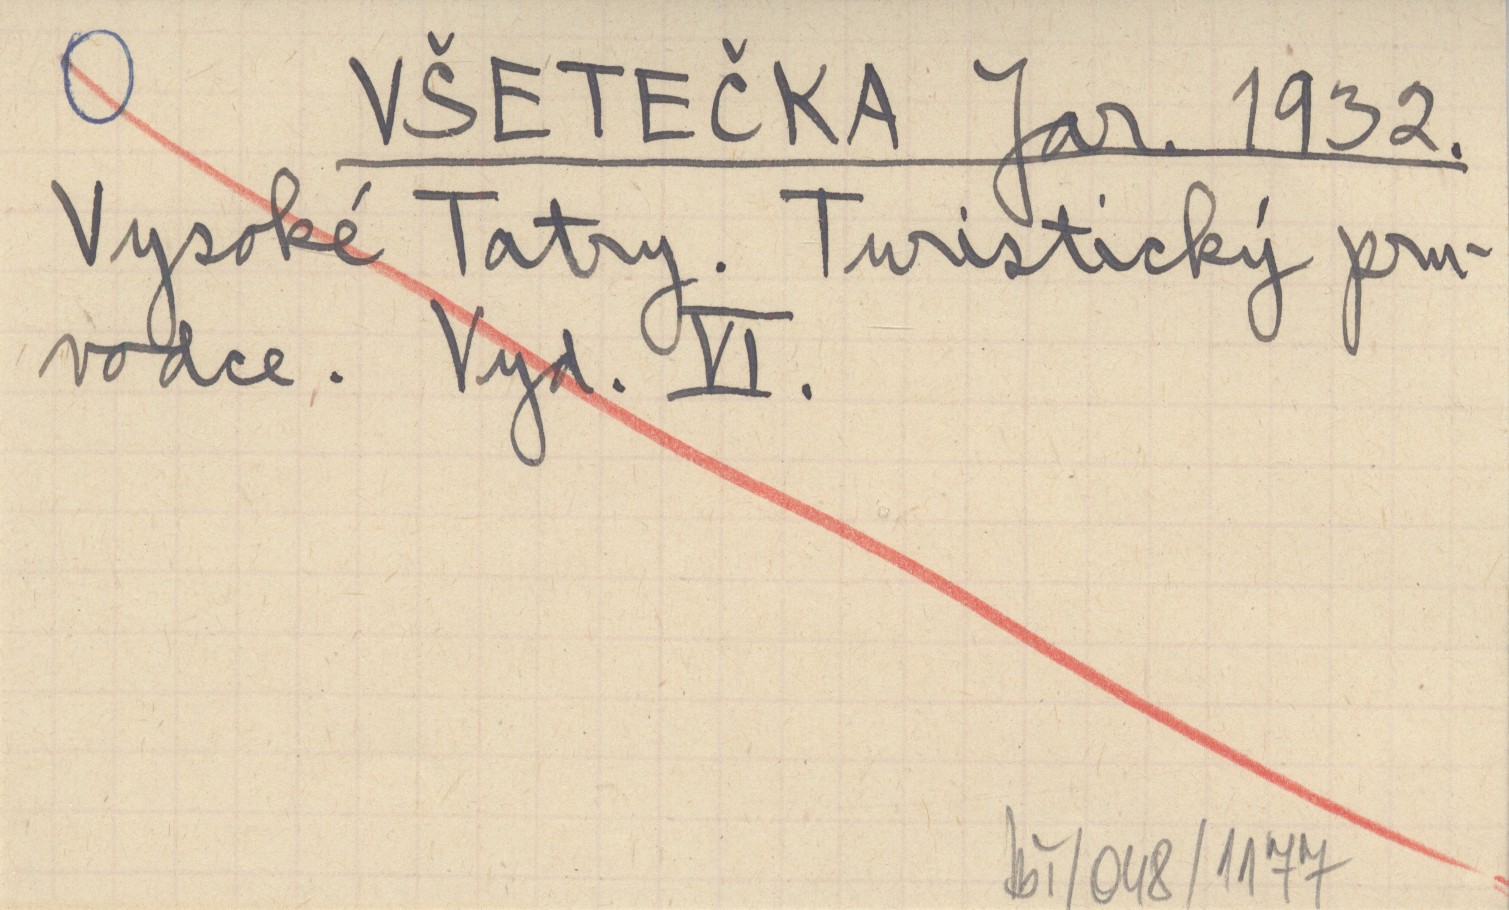 VŠETEČKA Jar. 1932.
Vysoké Tatry. Turistický pru-
vodce. Vyd. VI.
/048/1177